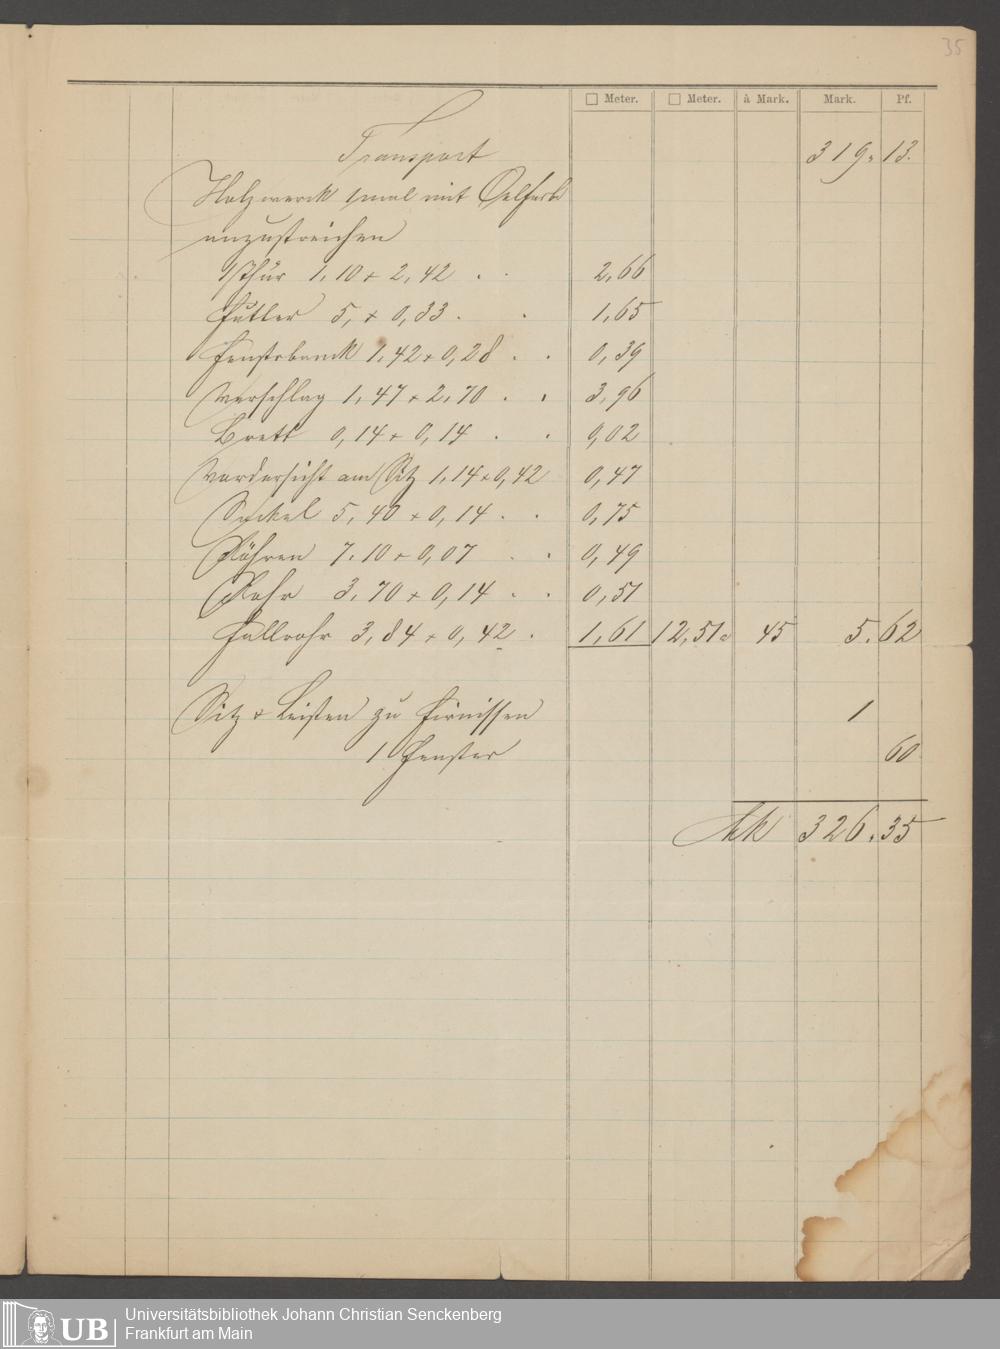 35
□ Meter. □ Meter. à Mark. Mark. Pf.
Transport 319. 13.
Holzwerck 1 mal mit Oelfarbe
anzustreichen
1 Thür 1,10 + 2,42 . . 2,66
Futter 5, + 0,33 . . 1,65
Fensterbanck 1,42 + 0,28 . . 0,39
Verschlag 1,47 + 2,70 . . 3,96
Brett 0,14 + 0,14 . . 0,02
Vordersicht am Sitz 1,14 + 0,42 0,47
Sockel 5,40 + 0,14 . . 0,75
Röhren 7,10 + 0,07 . . 0,49
Rohr 3,70 + 0,14 . . 0,51
Fallrohr 3,84 + 0,42 . 1,61 12,51 a 45 5. 62
Sitz & Leisten zu firnissen 1
1 Fenster 60
Mk 326. 35
Universitätsbibliothek Johann Christian Senckenberg
Frankfurt am Main
UB